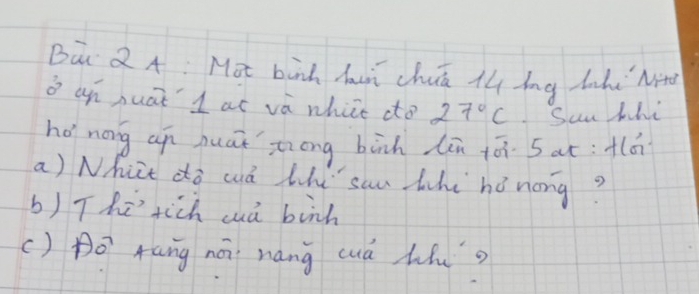 Bài 2A: Một bình kín chứa 14 kg khí Nitơ
ở áp suất 1 at và nhiệt độ 27°C. Sau khi
hơ nóng áp suất trong bình lên tới 5 at: Hỏi
a) Nhiệt độ cuả khí sau khi hơ nóng ?
b) Thể tích cuả bình
c) Độ tăng nội năng cuả khí ?